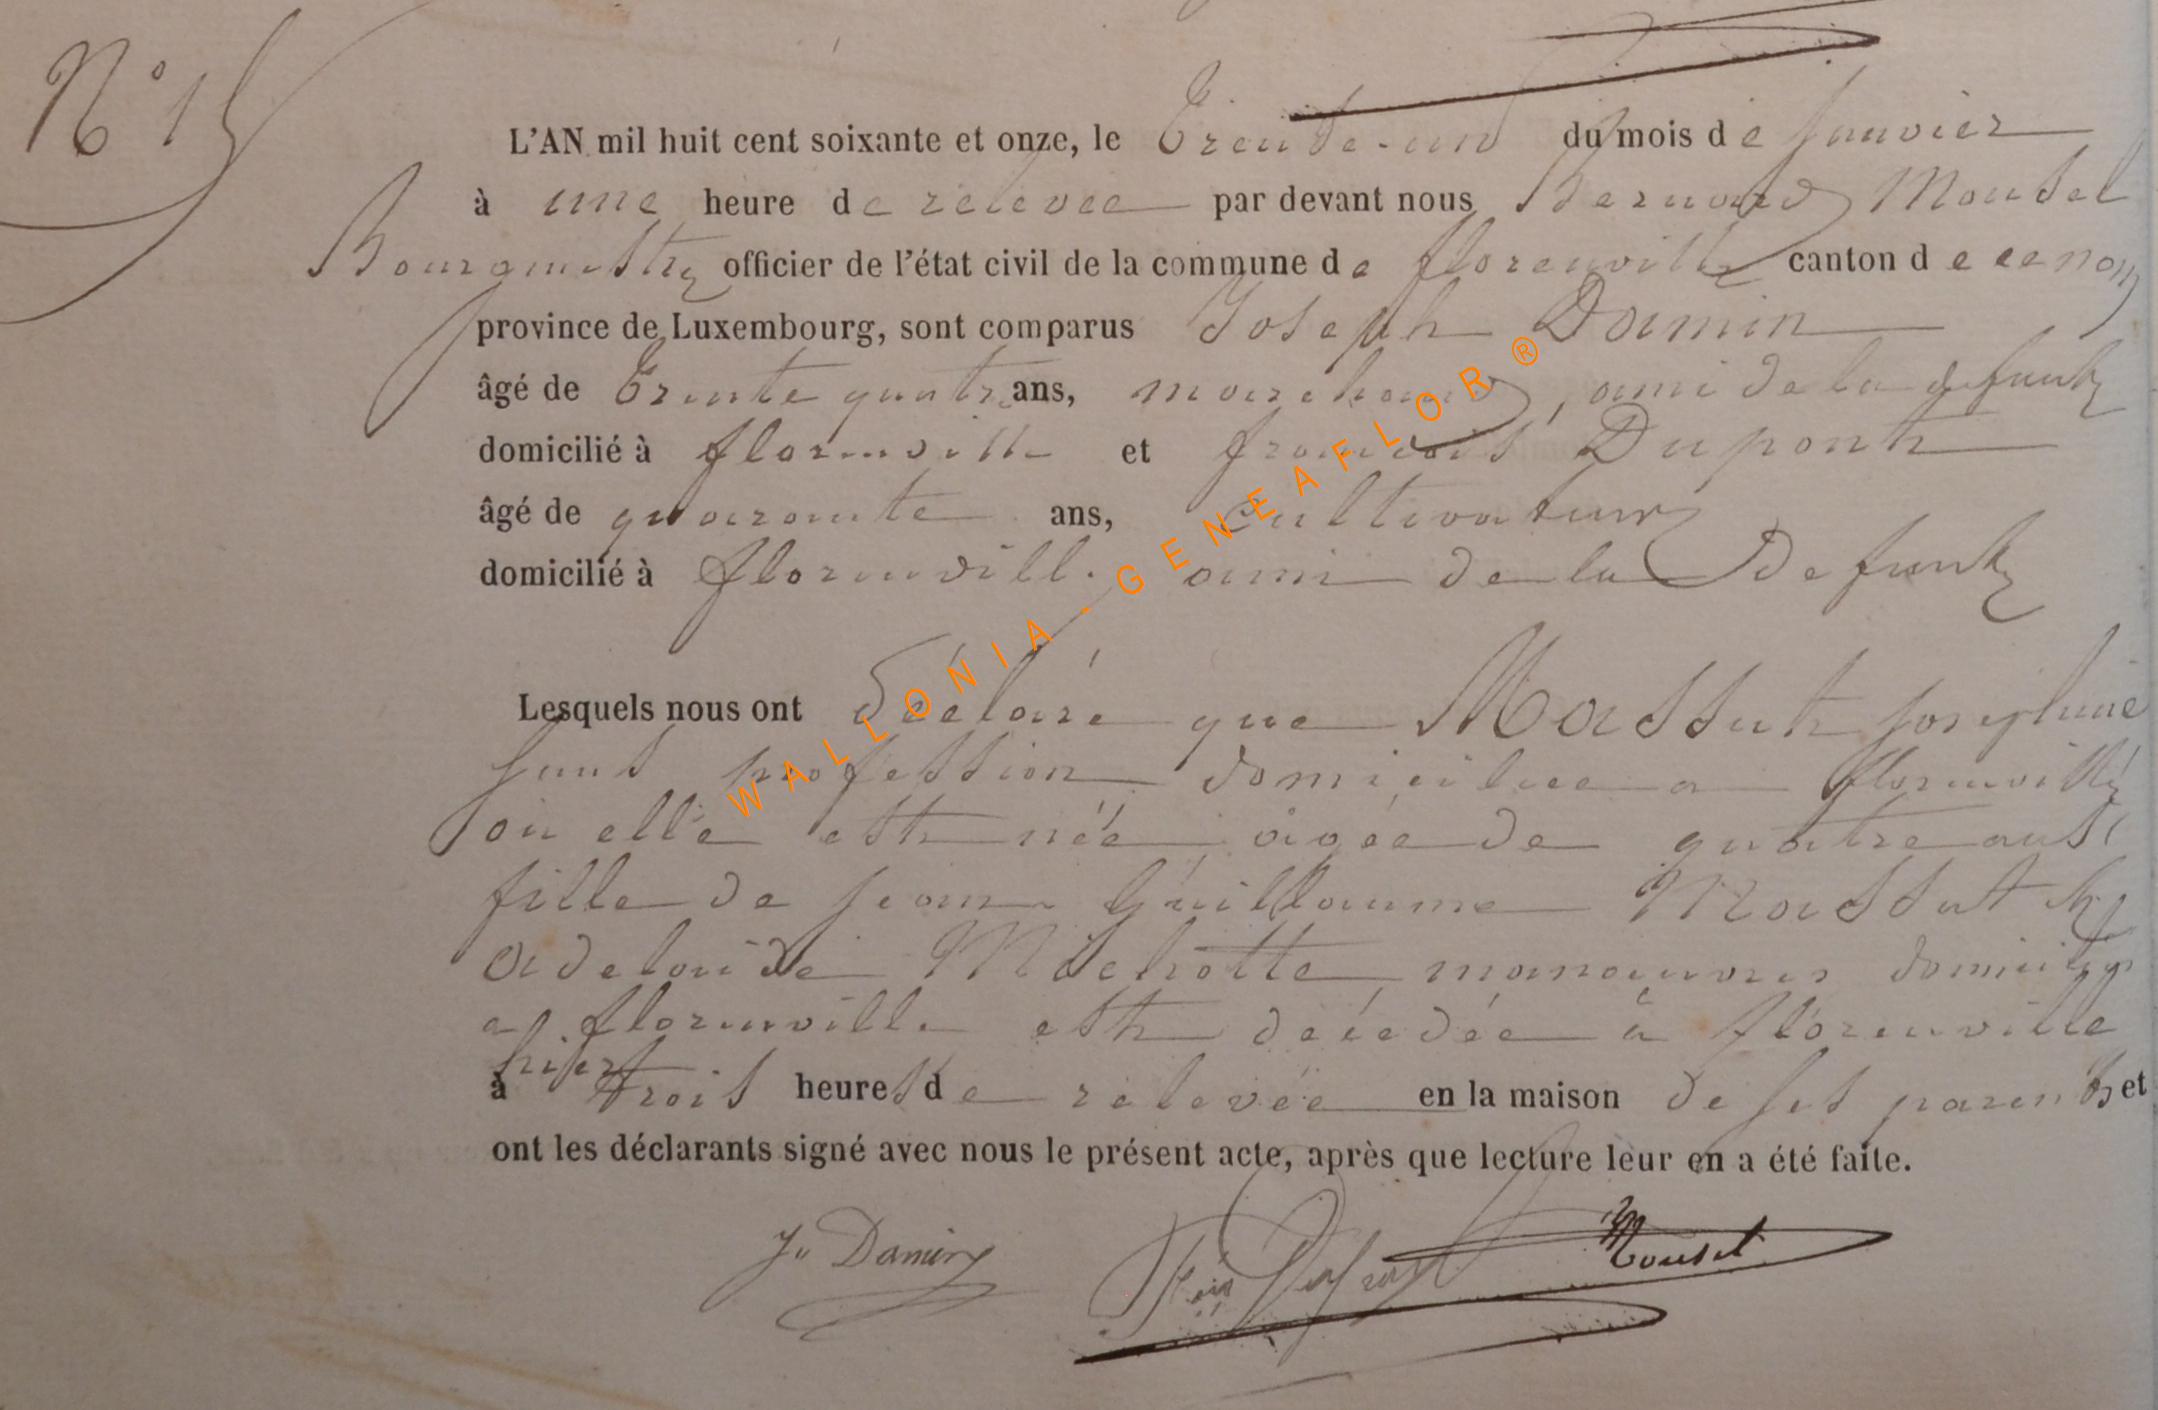 N° 15
L'AN mil huit cent soixante et onze, le Trente-un du mois de Janvier
à une heure de relevée par devant nous Bernard Mousel
Bourgmestre officier de l'état civil de la commune de florenville canton de ce nom
province de Luxembourg, sont comparus Joseph Damin
âgé de Trente quatre ans, marchand, ami de la defunte
domicilié à florenville et françois Dupont
âgé de quarante ans, Cultivateur
domicilié à florenville ami de la Defunte
Lesquels nous ont déclaré que Massut Josephine
sans profession domiciliee a florenville
où elle est née âgée de quatre ans
fille de Jean Guillaume Massut et
adelaïde domiciliés
a florenville est décédée à florenville
hier
à trois heures de relevée en la maison de ses parents et
ont les déclarants signé avec nous le présent acte, après que lecture leur en a été faite.
Jh Damin Mousel
WALLONIA-GENEAFLOR®